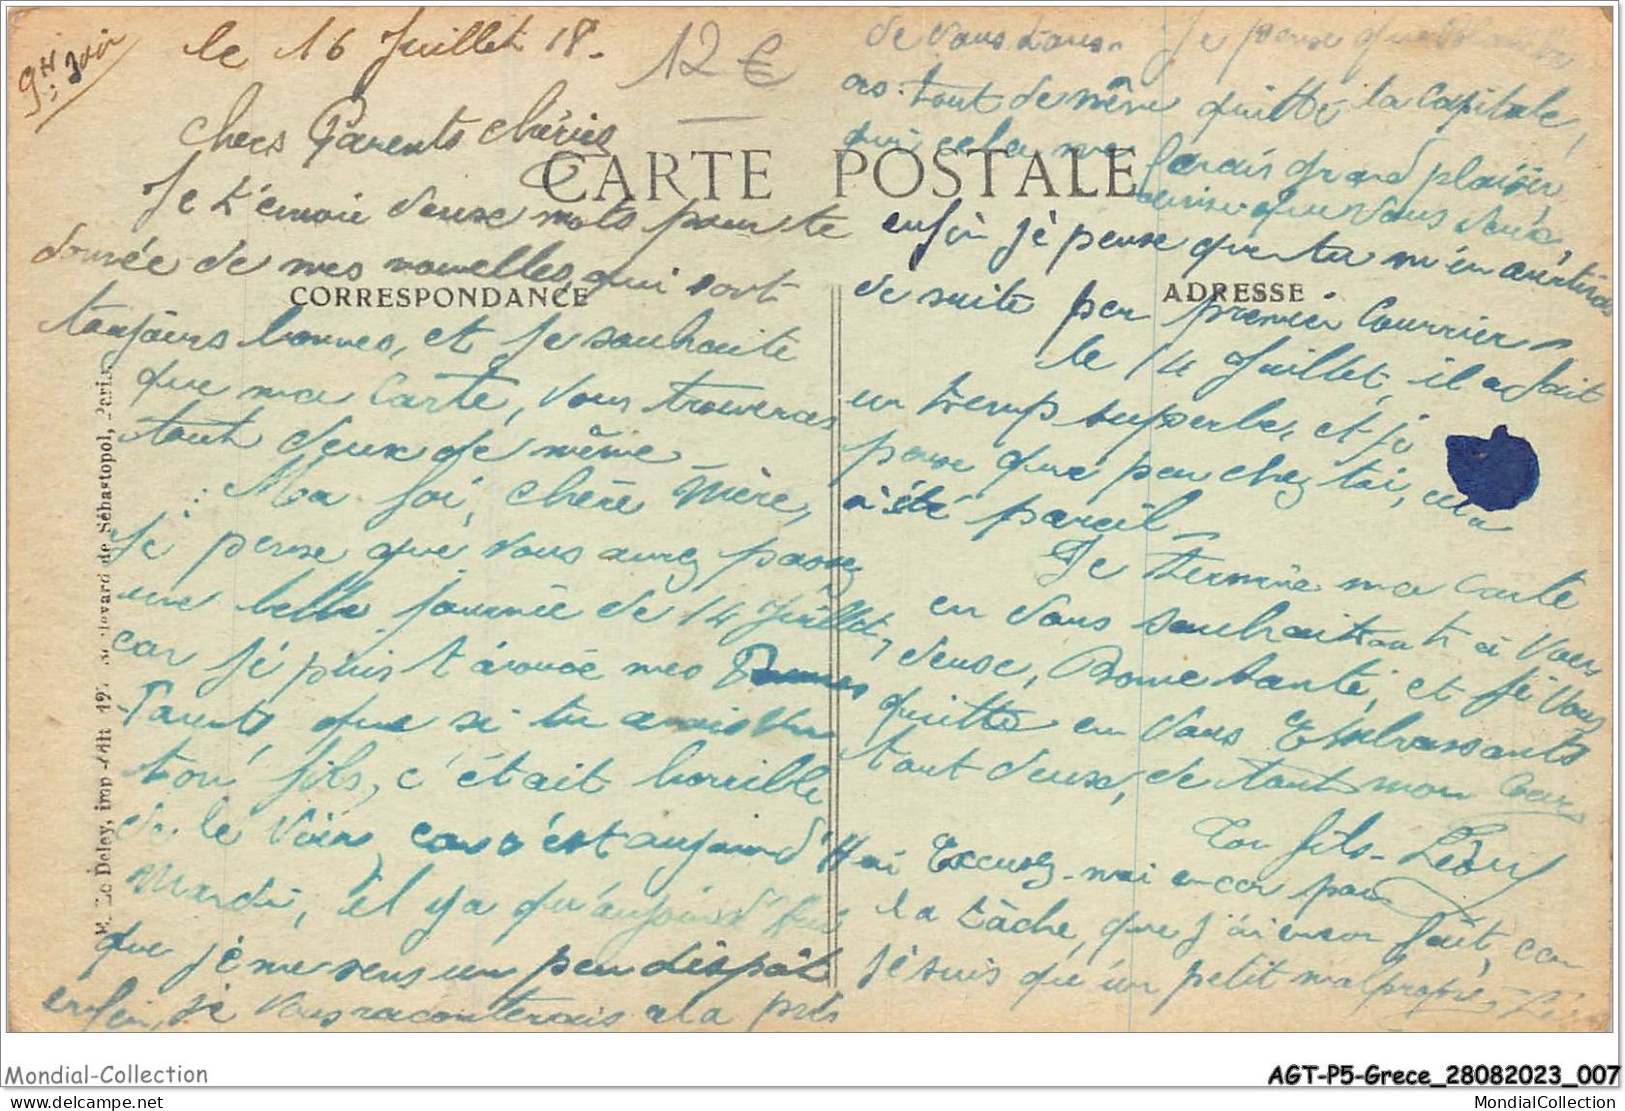 le 16 Juillet 18.
12 €
Chers Parents chéries
CARTE POSTALE
Je t'envoie deux mots pour te
donnée de mes nouvelles, qui sont
CORRESPONDANCE
toujours bonnes, et je souhaite
que ma Carte, vous trouveras
tout deux de même
Ma foi, chère Mère,
Je pense que vous aurez passez
une belle journée de 14 Juillet,
car je puis t'avouée mes
Parents que si tu avais vu
ton fils, c'était horrible
de le voir, car c'est aujourd'hui
Mardi, il y a qu'aujourd'hui
que je me sens un peu dispôt
enfin, je vous raconterais a la
de vous tous. Je pense que
as tout de même quitté la Capitale,
qui cela me ferais grand plaisir
que vous
enfin je pense que tu m'en avertiras
de suite par premier Courrier
ADRESSE
le 14 Juillet, il a fait
un temps superbe, et je
pense que par chez toi, cela
a été pareil
Je termine ma carte
en vous souhaitant à vous
deux, Bonne Santé, et je vous
quitte en vous Embrassants
tout deux, de tout mon Cœur
Ton fils. Léon
Excusez-moi encor pour
la tâche, que j'ai encor fait, car
je suis qu'un petit malpropre
E. Le Deley, imp.-édit., 127, Boulevard de Sébastopol, Paris
Mondial-Collection
AGT-P5-Grece_28082023_007
MondialCollection